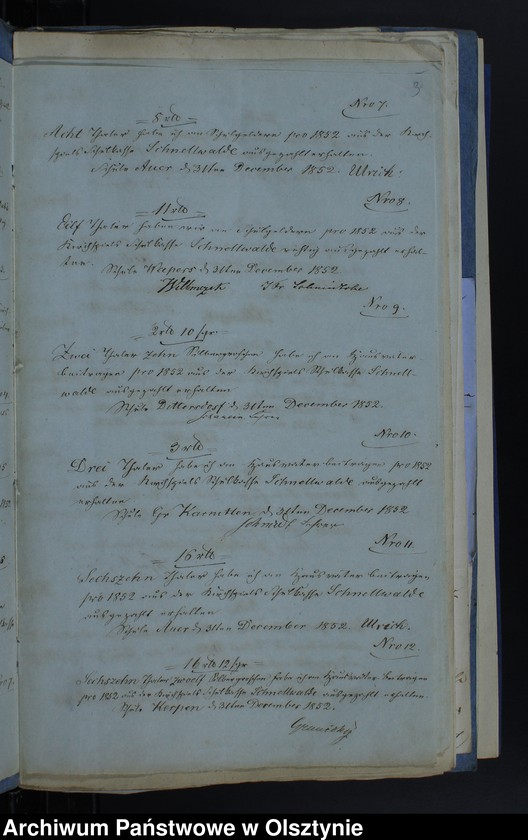 3
Nro 7.
= 8 rtlr =
Acht Thaler habe ich an Schulgeldern pro 1852 aus der Kirch-
spiels Schulkasse Schnellwalde ausgezahlt erhalten.
Schule Auer d 31ten December 1852. Ulrich.
Nro 8.
= 11 rtlr =
Eilf Thaler haben wir an Schulgeldern pro 1852 aus der
Kirchspiels Schulkasse Schnellwalde richtig ausgezahlt erhal-
ten.
Schule Weepers d 31ten December 1852
Nro 9.
= 2 rtlr 10 sgr =
Zwei Thaler zehn Silbergroschen habe ich an Hausvater
beitragen pro 1852 aus der Kirchspiels Schulkasse Schnell-
walde ausgezahlt erhalten
Schule Dittersdorf d 31ten December 1852.
Lehrer
Nro 10.
= 3 rtlr =
Drei Thaler habe ich an Hausvaterbeitragen pro 1852
aus der Kirchspiels Schulkasse Schnellwalde ausgezahlt
erhalten
Schule Gr Karnitten d 31ten December 1852
Lehrer
Nro 11.
= 16 rtlr =
Sechszehn Thaler habe ich an Hausvaterbeitragen
pro 1852 aus der Kirchspiels Schulkasse Schnellwalde
ausgezahlt erhalten
Schule Auer d 31ten December 1852. Ulrich.
Nro 12.
= 16 rtlr 12 sgr =
Sechszehn Thaler zwoelf Silbergroschen habe ich an Hausvater Beitragen
pro 1852 aus der Kirchspiels Schulkasse Schnellwalde ausgezahlt erhalten.
Schule Kerpen d 31ten December 1852.
Archiwum Państwowe w Olsztynie